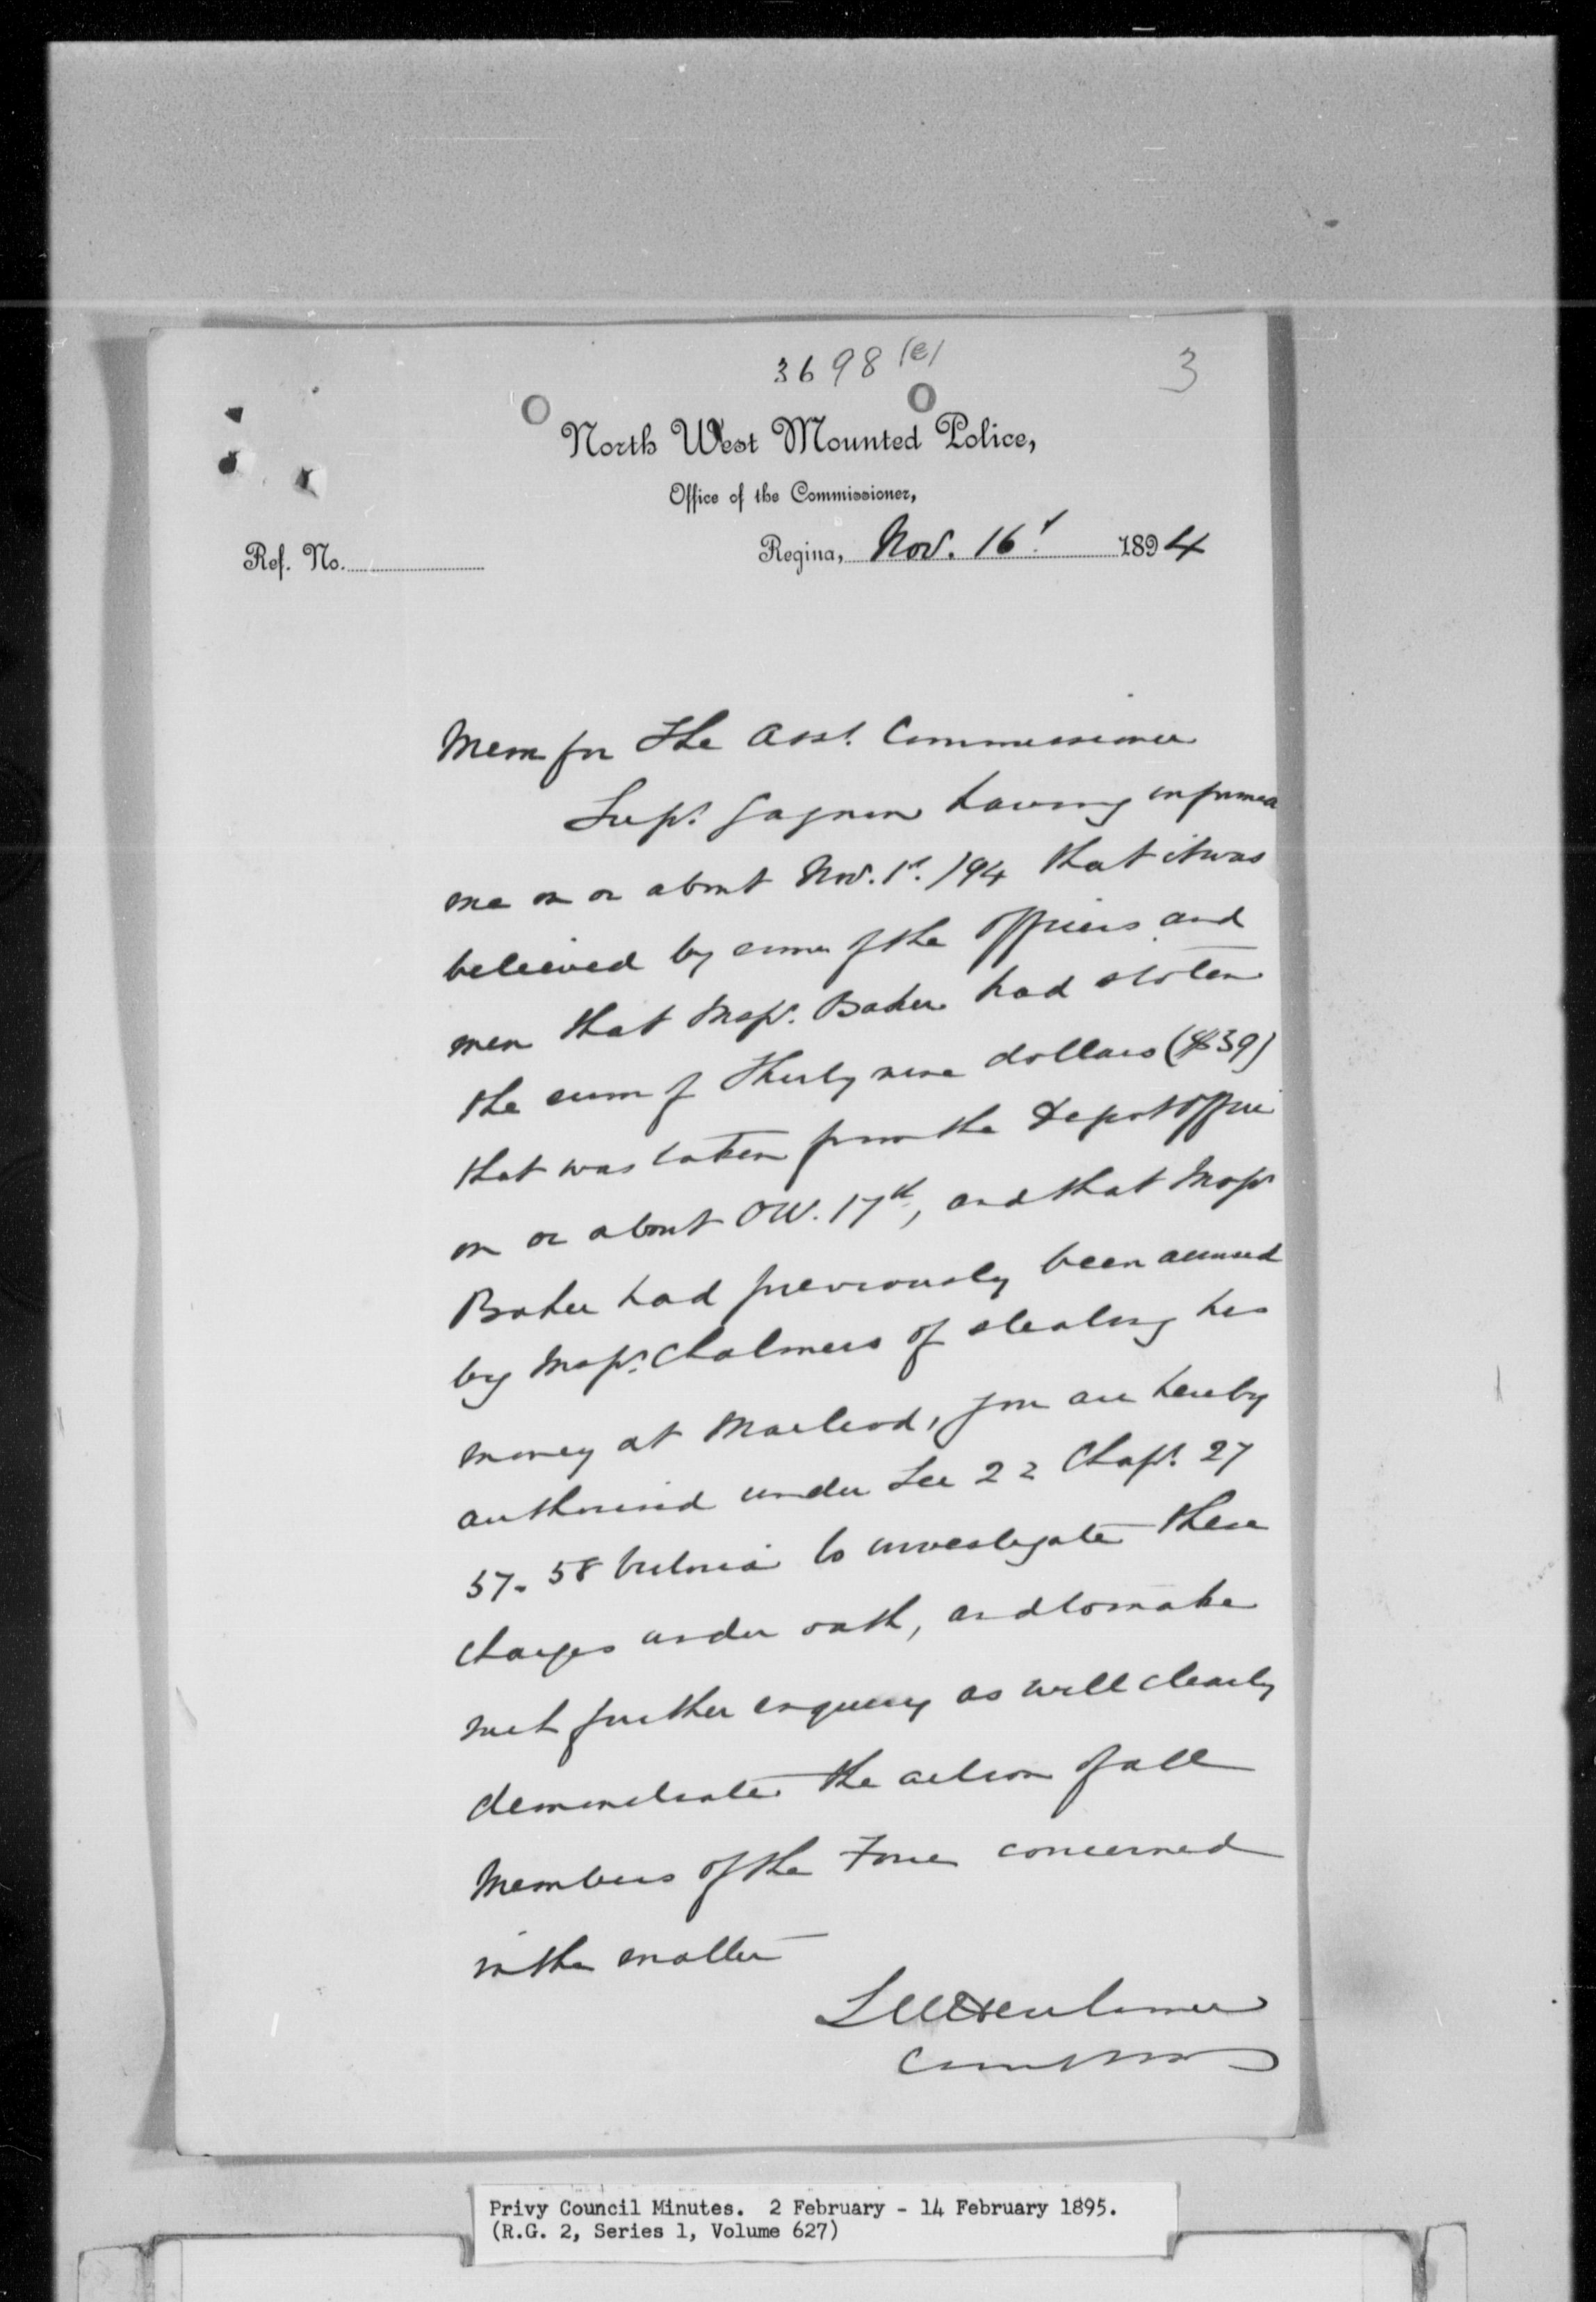 3698 (e)
3
North West Mounted Police,
Office of the Commissioner,
Ref. No.
Regina, Nov. 16t. 1894
Memo for The Asst. Commissioner
Supt. Gagnon having informed
me on or about Nov. 1st. /94 that it was
believed by some of the Officers and
men that Inspr. Baker had stolen
the sum of Thirty nine dollars ($39)
that was taken from the Depot Office
on or about Oct. 17th, and that Inspr
Baker had previously been accused
by Inspr. Chalmers of stealing his
money at Macleod, you are hereby
authorized under Sec 22 Chapt. 27
57-58 Victoria to investigate these
charges under oath, and to make
such further enquiry as will clearly
demonstrate the action of all
Members of the Force concerned
in the matter
LWHerchmer
Commr
Privy Council Minutes. 2 February - 14 February 1895.
(R.G. 2, Series 1, Volume 627)